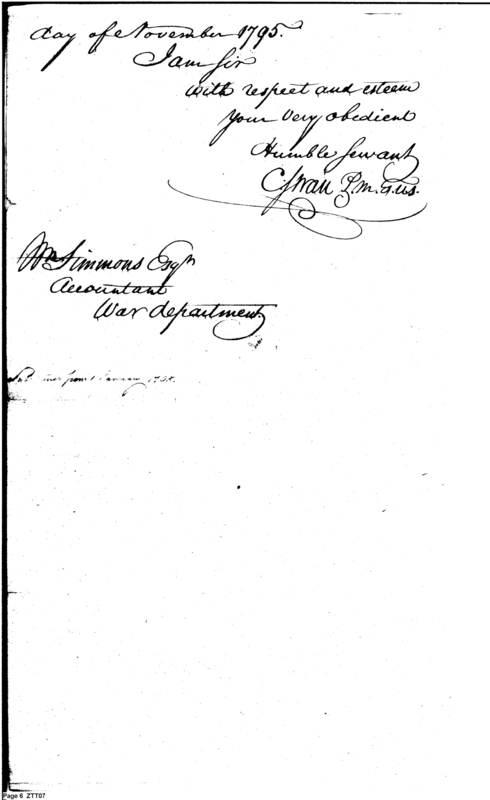 day of November 1795.
I am Sir
with respect and esteem
your very obedient
Humble Servant
C Swan P.m.a.us.
Wm Simmons Esqr
Accountant
War department.
from 1
Page 6 ZTT07